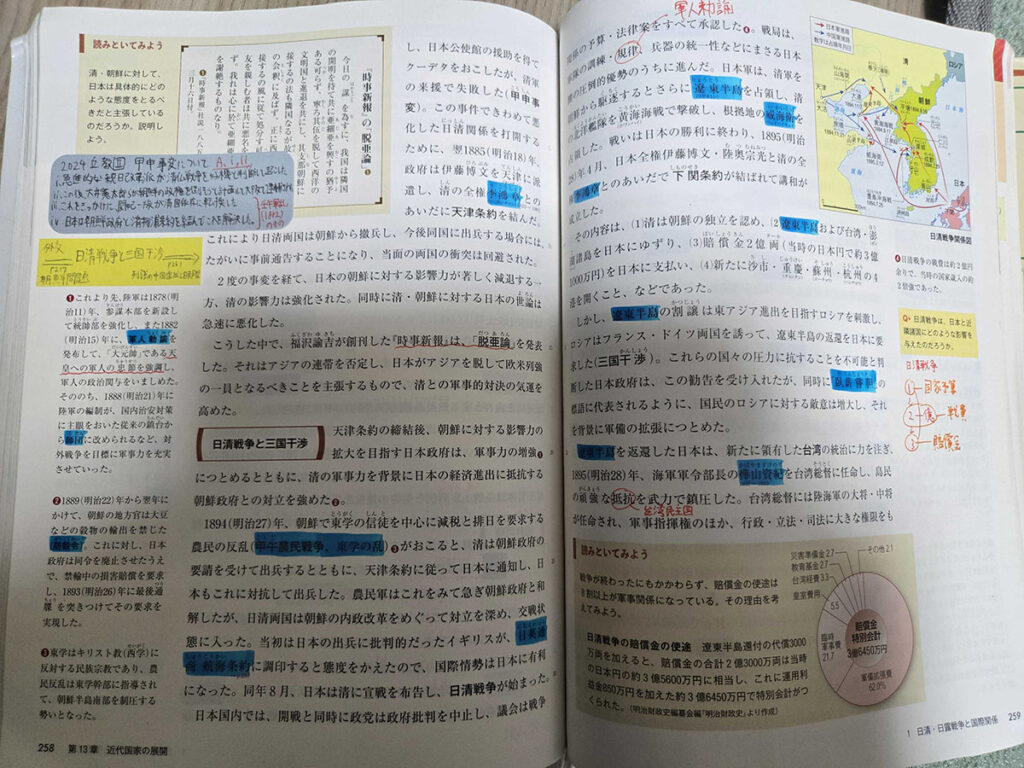 読みといてみよう
清・朝鮮に対して、
日本は具体的にどの
ような態度をとるべ
きだと主張している
のだろうか。説明し
よう。
『時事新報』の「脱亜論」
今日の謀を為すに、我国は隣国
の開明を待て共に亜細亜を興すの猶予
ある可らず、寧ろ其伍を脱して西洋の
文明国と進退を共にし、其支那朝鮮に
接するの法も隣国なるが故にとて特別
の会釈に及ばず、正に西洋人が之に
接するの風に従て処分す可きのみ。悪
友を親しむ者は共に悪名を免かる可らず。
我れは心に於て亜細亜東方の悪友
を謝絶するものなり。
2024 立教
甲申事変について
日清戦争と三国干渉
❶これより先、陸軍は1878(明
治11)年、参謀本部を新設し
て統帥部を強化し、また1882
(明治15)年に、軍人勅諭を
発布して、「大元帥」である天
皇への軍人の忠節を強調し、
軍人の政治関与をいましめた。
そののち、1888(明治21)年に
陸軍の編制が、国内治安対策
に主眼をおいた従来の鎮台か
ら師団に改められるなど、対
外戦争を目標に軍事力を充実
させていった。
❷1889(明治22)年から翌年に
かけて、朝鮮の地方官は大豆
などの穀物の輸出を禁じた
(防穀令)。これに対し、日本
政府は同令を廃止させたうえ
で、禁輸中の損害賠償を要求
し、1893(明治26)年に最後通
牒を突きつけてその要求を
実現した。
❸東学はキリスト教(西学)に
反対する民族宗教であり、農
民反乱は東学幹部に指導され
て、朝鮮半島南部を制圧する
勢いとなった。
し、日本公使館の援助を得て
クーデタをおこしたが、清軍
の来援で失敗した(甲申事
変)。この事件できわめて悪
化した日清関係を打開する
ために、翌1885(明治18)年、
政府は伊藤博文を天津に派
遣し、清の全権李鴻章との
あいだに天津条約を結んだ。
これにより日清両国は朝鮮から撤兵し、今後同国に出兵する場合には、
たがいに事前通告することになり、当面の両国の衝突は回避された。
2度の事変を経て、日本の朝鮮に対する影響力が著しく減退する一
方、清の影響力は強化された。同時に清・朝鮮に対する日本の世論は
急速に悪化した。
こうした中で、福沢諭吉が創刊した『時事新報』は、「脱亜論」を発表
した。それはアジアの連帯を否定し、日本がアジアを脱して欧米列強
の一員となるべきことを主張するもので、清との軍事的対決の気運を
高めた。
日清戦争と三国干渉
天津条約の締結後、朝鮮に対する影響力の
拡大を目指す日本政府は、軍事力の増強❶
につとめるとともに、清の軍事力を背景に日本の経済進出に抵抗する
朝鮮政府との対立を強めた❷。
1894(明治27)年、朝鮮で東学の信徒を中心に減税と排日を要求する
農民の反乱(甲午農民戦争、東学の乱)❸がおこると、清は朝鮮政府の
要請を受けて出兵するとともに、天津条約に従って日本に通知し、日
本もこれに対抗して出兵した。農民軍はこれをみて急ぎ朝鮮政府と和
解したが、日清両国は朝鮮の内政改革をめぐって対立を深め、交戦状
態に入った。当初は日本の出兵に批判的だったイギリスが、日英通
商航海条約に調印すると態度をかえたので、国際情勢は日本に有利
になった。同年8月、日本は清に宣戦を布告し、日清戦争が始まった。
日本国内では、開戦と同時に政党は政府批判を中止し、議会は戦争
258 第13章 近代国家の展開
軍人勅諭
係の予算・法律案をすべて承認した❹。戦局は、
軍隊の訓練・規律、兵器の統一性などにまさる日本
側の圧倒的優勢のうちに進んだ。日本軍は、清軍を
朝鮮から駆逐するとさらに遼東半島を占領し、清
の北洋艦隊を黄海海戦で撃破し、根拠地の威海衛を
占領した。戦いは日本の勝利に終わり、1895(明治
28)年4月、日本全権伊藤博文・陸奥宗光と清の全
権李鴻章とのあいだで下関条約が結ばれて講和が
成立した。
その内容は、(1)清は朝鮮の独立を認め、(2)遼東半島および台湾・澎
湖諸島を日本にゆずり、(3)賠償金2億両(当時の日本円で約3億
1000万円)を日本に支払い、(4)新たに沙市・重慶・蘇州・杭州の4
港を開くこと、などであった。
しかし、遼東半島の割譲は東アジア進出を目指すロシアを刺激し、
ロシアはフランス・ドイツ両国を誘って、遼東半島の返還を日本に要
求した(三国干渉)。これらの国々の圧力に抗することを不可能と判
断した日本政府は、この勧告を受け入れたが、同時に「臥薪嘗胆」の
標語に代表されるように、国民のロシアに対する敵意は増大し、それ
を背景に軍備の拡張につとめた。
遼東半島を返還した日本は、新たに領有した台湾の統治に力を注ぎ、
1895(明治28)年、海軍軍令部長の樺山資紀を台湾総督に任命し、島民
の頑強な抵抗を武力で鎮圧した。台湾総督には陸海軍の大将・中将
台湾民主国
が任命され、軍事指揮権のほか、行政・立法・司法に大きな権限をも
日本軍進路
中国軍進路
清
ロシア
朝鮮
日清戦争関係図
❹日清戦争の戦費は約2億円
余りで、当時の国家歳入の約
2倍強であった。
Q 日清戦争は、日本と近
隣諸国にどのような影響を
与えたのだろうか。
日清戦争
① 国家予算
② 億 戦費
③ 賠償金
読みといてみよう
戦争が終わったにもかかわらず、賠償金の使途は
8割以上が軍事関係になっている。その理由を考
えてみよう。
日清戦争の賠償金の使途 遼東半島還付の代償3000
万両を加えると、賠償金の合計2億3000万両は当時
の日本円の約3億5600万円に相当し、これに運用利
益金850万円を加えた約3億6450万円で特別会計がつ
くられた。(明治財政史編纂会編『明治財政史』より作成)
災害準備金2.7
教育基金2.7
台湾経費3.3
皇室費用
5.5
その他2.1
臨時
軍事費
21.7
賠償金
特別会計
3億6450万円
軍備拡張費
62.0%
1 日清・日露戦争と国際関係 259